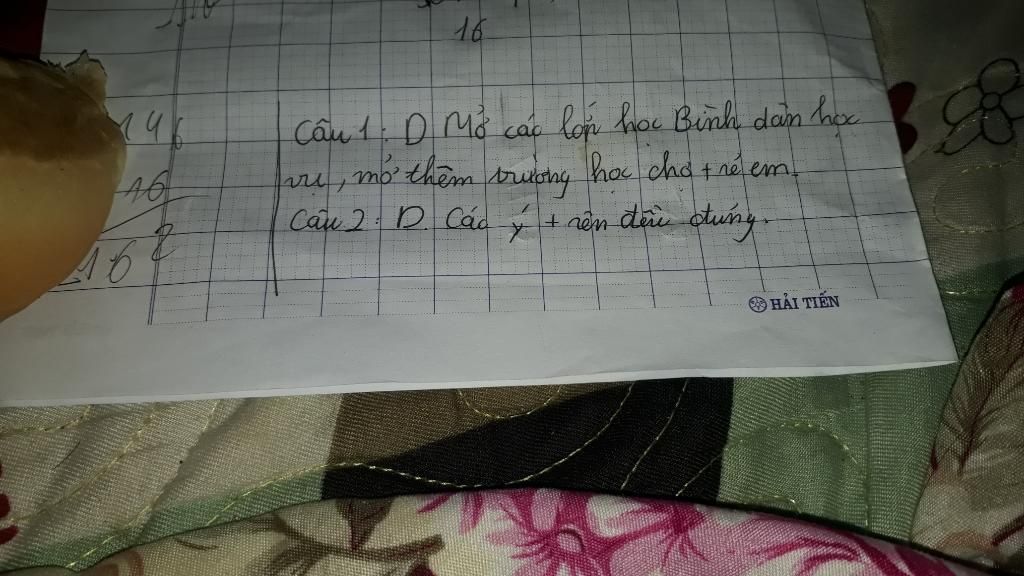 16
146
16
162
Câu 1: D Mở các lớp học Bình dân học
vụ, mở thêm trường học cho trẻ em.
Câu 2: D. Các ý trên đều đúng.
HẢI TIẾN